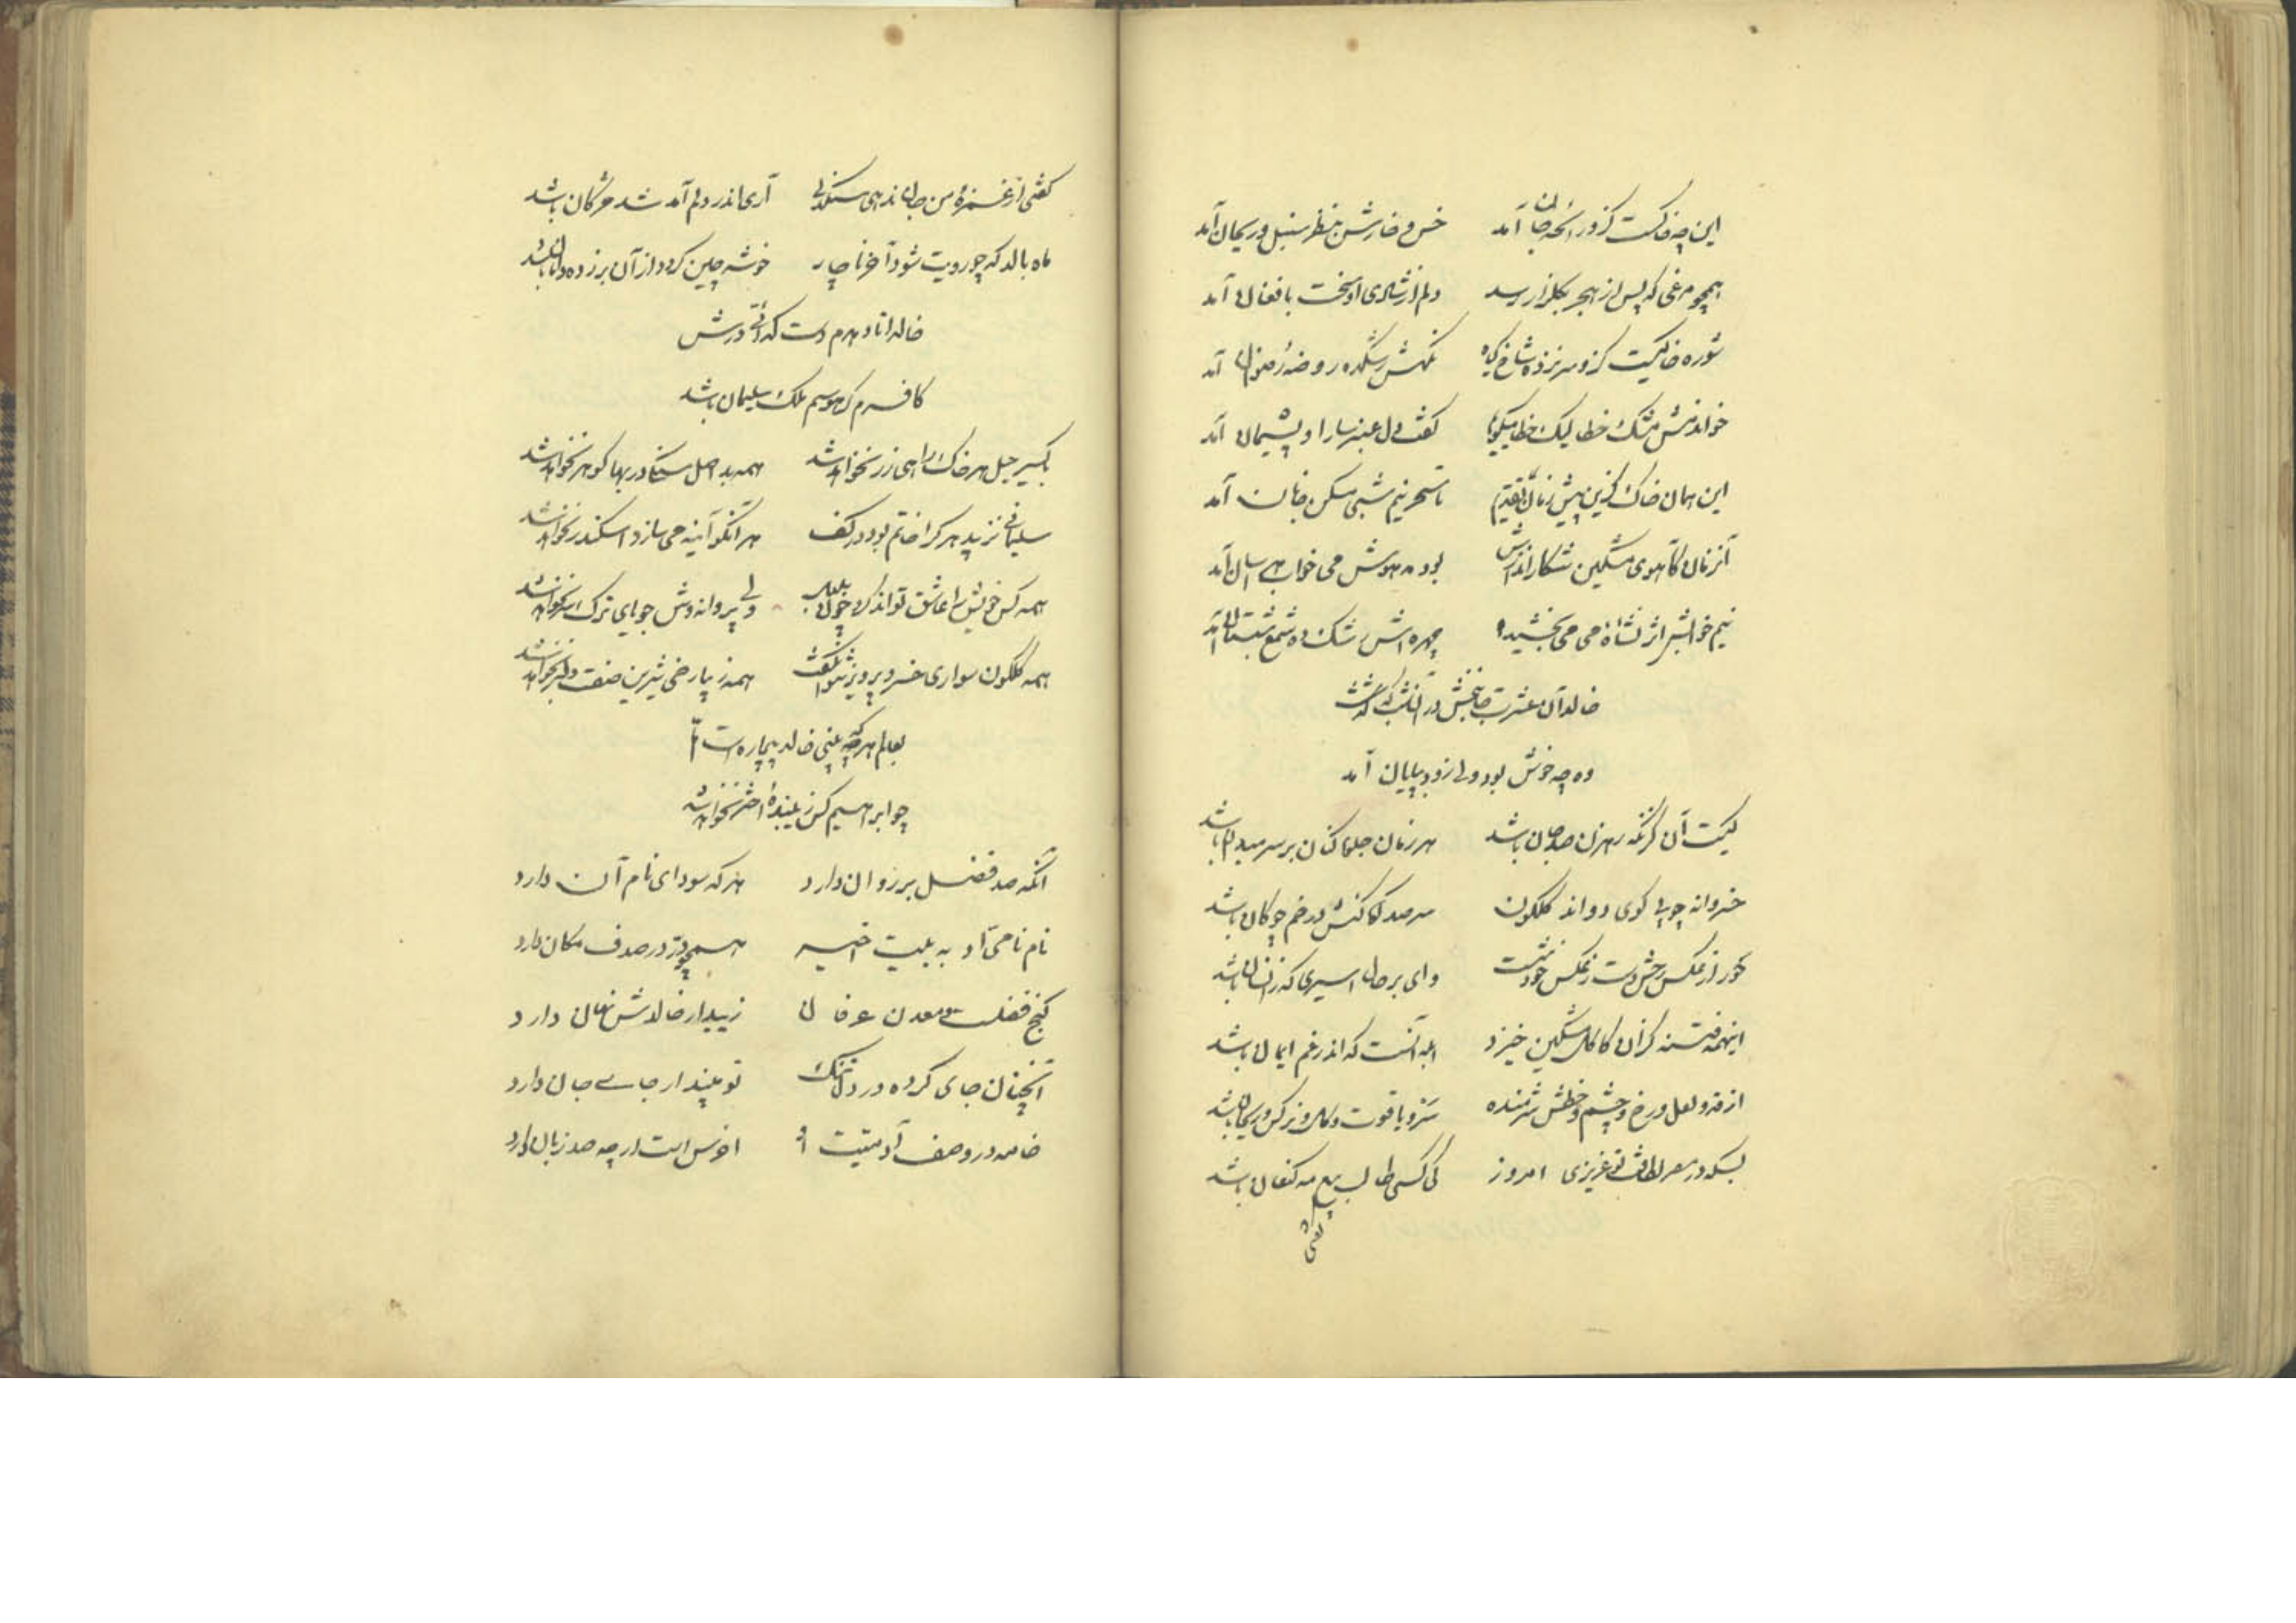 این چه خاکست کزو رائحه جان آمد خس و خارش بنظر سنبل و ریحان آمد
همچو مرغی که پس از هجر بگلزار رسد دلم از شادی او سخت بافغان آمد
شوره خاکیست کزو سر نزده شاخ گیاه نکهتش رشکده روضهٔ رضوان آمد
خواندمش مشک خطا لیک خطا میگویم گفت دل عنبر سارا و پشیمان آمد
این همان خاک کزین پیش زمان تقدیم تا سحر نیم شبی مسکن جانان آمد
آنزمان کآهوی مشکین شکار اندازش بود مدهوش می خواب هراسان آمد
نیم خوابش اثر نشاهٔ می می بخشید چهره اش رشک ده شمع شبستان آمد
خالد آن عشرت جانبخش در آنشب که گذشت
وه چه خوش بود ولی زود بپایان آمد
کیست آن کز نگه رهزن صد جان باشد هر زمان جلوه کنان بر سر میدان باشد
خسروانه چو پی گوی دواند گلگون سر صد کوهکنش در خم چوگان باشد
خور ز عکس رخش و ز عکس خودست وای بر حال اسیری که ز انسان باشد
اینهمه فتنه کزان کاکل مشکین خیزد ابله آنست که اندر غم ایمان باشد
از قد و لعل و رخ و چشم و خطش شرمنده سرو و یاقوت و گل و نرگس و ریحان باشد
بسکه در مصر لطافت تو عزیزی امروز کی کسی طالب بیع مه کنعان باشد
گفتی
گفتی از غمزهٔ من جان ندهی سنگدلی آری اندر دلم آمد شد مژگان باشد
ماه بالد که چو رویت شود آخر ناچار خوشه چین گردد از آن بر زده دامان باشد
خالد افتاده مردم دست گدائی درش
کافرم گر هوسم ملک سلیمان باشد
باکسیر حیل هر خاک را هی زر نخواهد شد همه بد اصل سنگ در بها گوهر نخواهد شد
سلیمانی نزیبد هر کرا خاتم بود در کف هر آنکو آینه می سازد اسکندر نخواهد شد
همه کس خویش را عاشق تواند کرد چون بلبل ولی پروانه وش جویای ترک سر نخواهد شد
همه گلگون سواری خسرو پرویز نتوان گفت همه زیبا رخی شیرین صفت دلبر نخواهد شد
بعالم هر چه بینی خالد بیچاره است اما
چو ابراهیم کس زیبندهٔ اختر نخواهد شد
آنکه صد فضل بر روان دارد هر که سودای نام آن دارد
نام نامی او به بیت اخیر همچو در در صدف مکان دارد
گنج فضلست و معدن عرفان زیبد ار خالدش نهان دارد
آنچنان جای کرده در دل تنگ تو بپندار جای جان دارد
خامه در وصف آدمیت او اخرس است ار چه صد زبان دارد